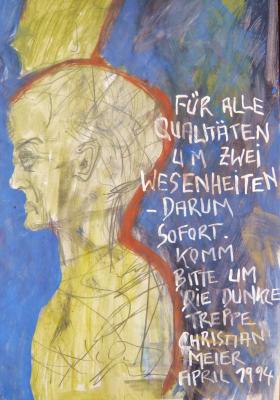 FÜR ALLE
QUALITÄTEN
UM ZWEI
WESENHEITEN
- DARUM
SOFORT.
KOMM
BITTE UM
DIE DUNKLE
TREPPE
CHRISTIAN
MEIER
APRIL 1994